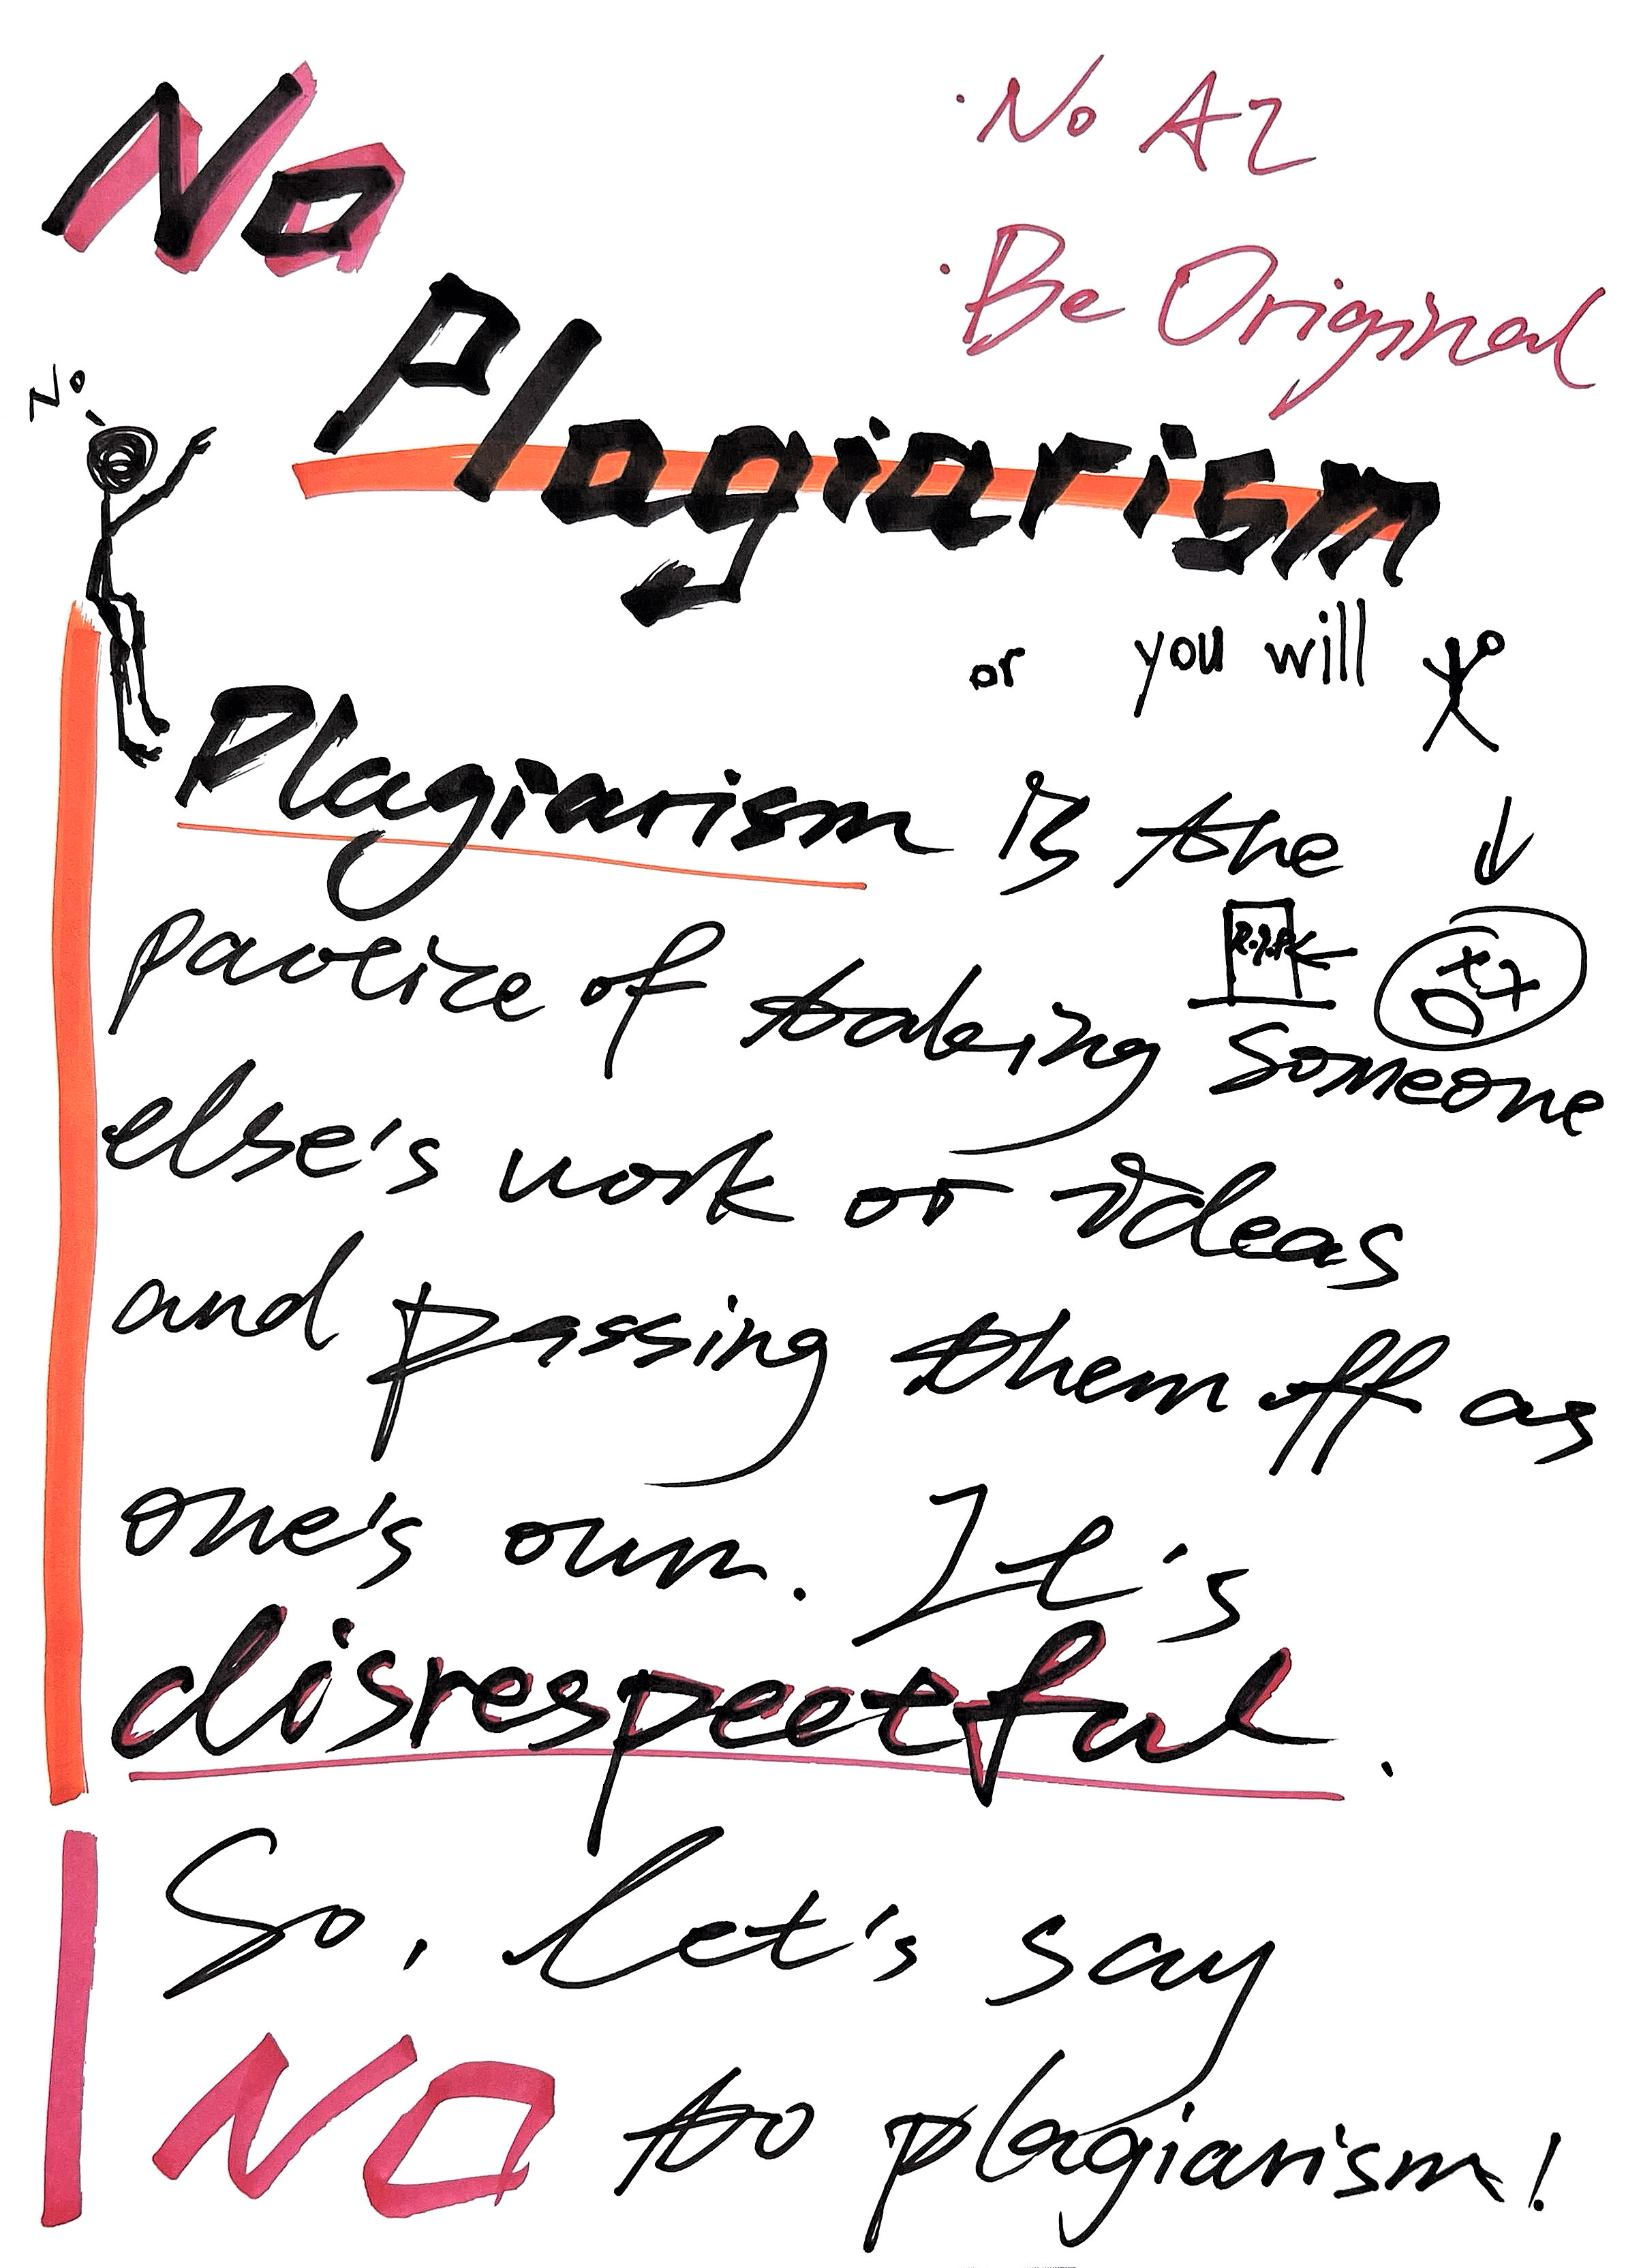 No
· No AI
· Be Original
Plagiarism
No
or you will
Plagiarism is the
pactice of taking someone
R.I.P
else's work or ideas
and passing them off as
one's own. It's
disrespectful.
So, let's say
NO to plagiarism!